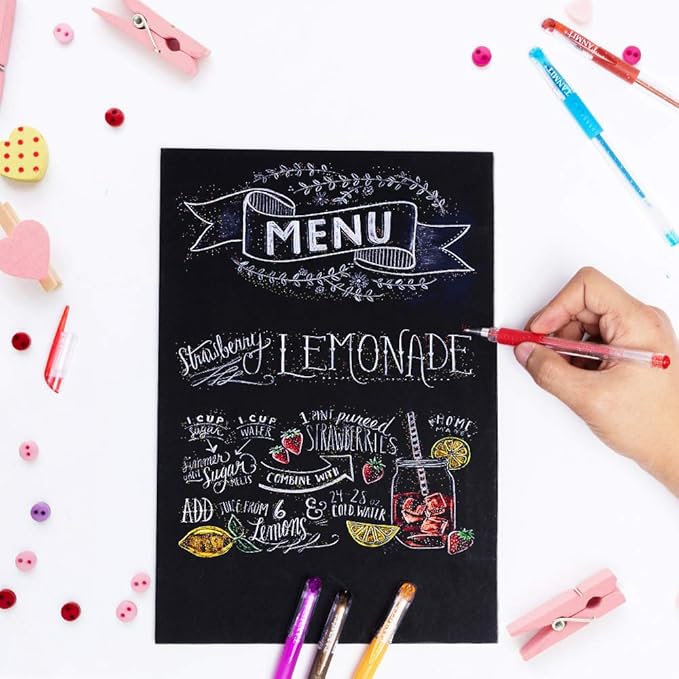 TANMIT
TANMIT
MENU
Strawberry LEMONADE
1 CUP sugar
1 CUP WATER
1 PINT pureed STRAWBERRIES
HOME MADE
Simmer UNTIL Sugar MELTS
COMBINE WITH
ADD JUICE FROM 6 Lemons & 24-28 oz COLD WATER